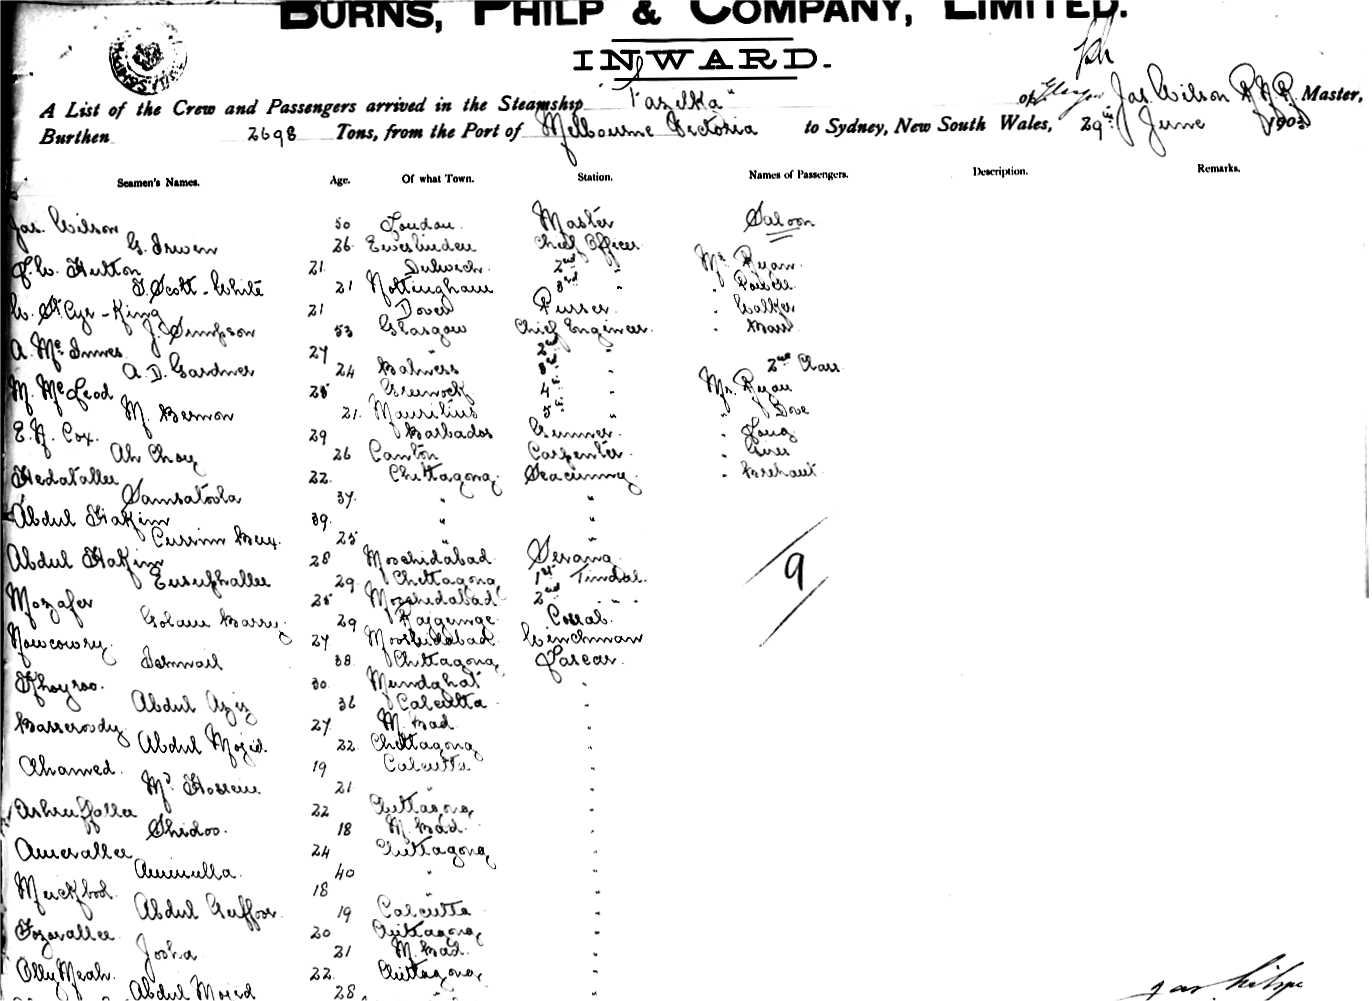 BURNS, PHILP & COMPANY, LIMITED.
INWARD.
A List of the Crew and Passengers arrived in the Steamship "Fazilka" of Glasgow Jas Wilson R.N.R. Master,
Burthen 2698 Tons, from the Port of Melbourne Victoria to Sydney, New South Wales, 29th June 1903
Seamen's Names. Age. Of what Town. Station. Names of Passengers. Description. Remarks.
Jas. Wilson 50 London Master Saloon
G. Irwin 26 Chief Officer
F. W. Hutton 21 Dulwich 2nd " Mr. Ryan
F. Scott-White 21 Nottingham 3rd " "
W. St. Cyr-King 21 Dover Purser " Walker
J. Simpson 53 Glasgow Chief Engineer "
A. McInnes 27 " 2nd "
A. D. Gardner 24 3rd " 2nd Class
M. McLeod 25 Greenock 4th " Mr. Ryan
M. Bernon 21 Mauritius 5th " " Dove
E. N. Cox 29 Barbados Gunner " Long
Ah Choy 26 Canton Carpenter "
Hedatallee 22 Chittagong Seacunny " Brehaut
Samsatoola 37 " "
Abdul Hakim 39 " "
Currim Bux 25 " "
Abdul Hakim 28 Moorshidabad Serang
Eusufhallee 29 Chittagong 1st Tindal
Mozafer 25 Moorshidabad 2nd "
Golam Barry 29 Rajgunge Cossab
Nowcowry 27 Moorshidabad Winchman
Ismail 38 Chittagong Lascar
Khoyroo 30 Mundaghat "
Abdul Aziz 36 Calcutta "
Basseroody 27 M. Bad "
Abdul Mozid 22 Chittagong "
Ahamed 19 Calcutta "
Md. Hossein 21 " "
Ashruffallee 22 Chittagong "
Shidoo 18 M. Bad "
Amerallee 24 Chittagong "
Aminulla 40 " "
Muckbool 18 "
Abdul Guffoor 19 Calcutta "
Fozerallee 20 Chittagong "
Josha 21 M. Bad "
Olly Meah 22 Chittagong "
Abdul Mozid 28 " "
9
Jas. Wilson